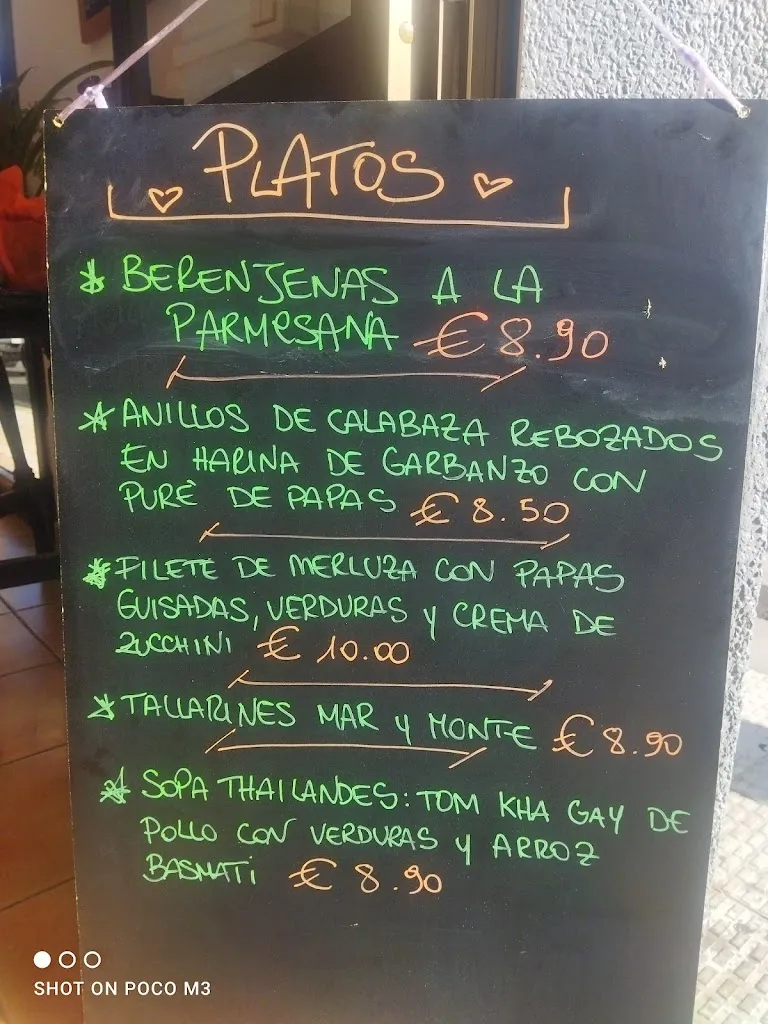 PLATOS
* BERENJENAS A LA
PARMESANA € 8.90
* ANILLOS DE CALABAZA REBOZADOS
EN HARINA DE GARBANZO CON
PURÈ DE PAPAS € 8.50
* FILETE DE MERLUZA CON PAPAS
GUISADAS, VERDURAS Y CREMA DE
ZUCCHINI € 10.00
* TALLARINES MAR Y MONTE € 8.90
* SOPA THAILANDES: TOM KHA GAY DE
POLLO CON VERDURAS Y ARROZ
BASMATI € 8.90
SHOT ON POCO M3